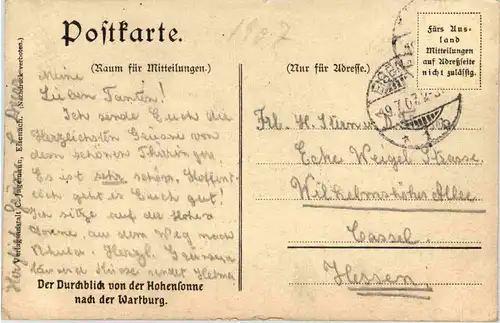 Postkarte.
1907
(Raum für Mitteilungen.)
(Nur für Adresse.)
Fürs Aus-
land
Mitteilungen
auf Adreßseite
nicht zulässig.
Meine
Lieben Tanten!
Ich sende Euch die
Herzlichsten Grüsse von
dem schönen Thüringen.
Es ist sehr schön. Hoffent-
lich geht es Euch gut!
Ich sitze auf der Hohen
Sonne, auf dem Weg nach
Ruhla. Herzl. Gr
tausend Küsse sendet Helma
Frl. H. Stern
Ecke Weigel Strasse
Wilhelmshöher Allee
Cassel
Hessen
Der Durchblick von der Hohensonne
nach der Wartburg.
Verlagsanstalt C. Jagemann, Eisenach. (Nachdruck verboten.)